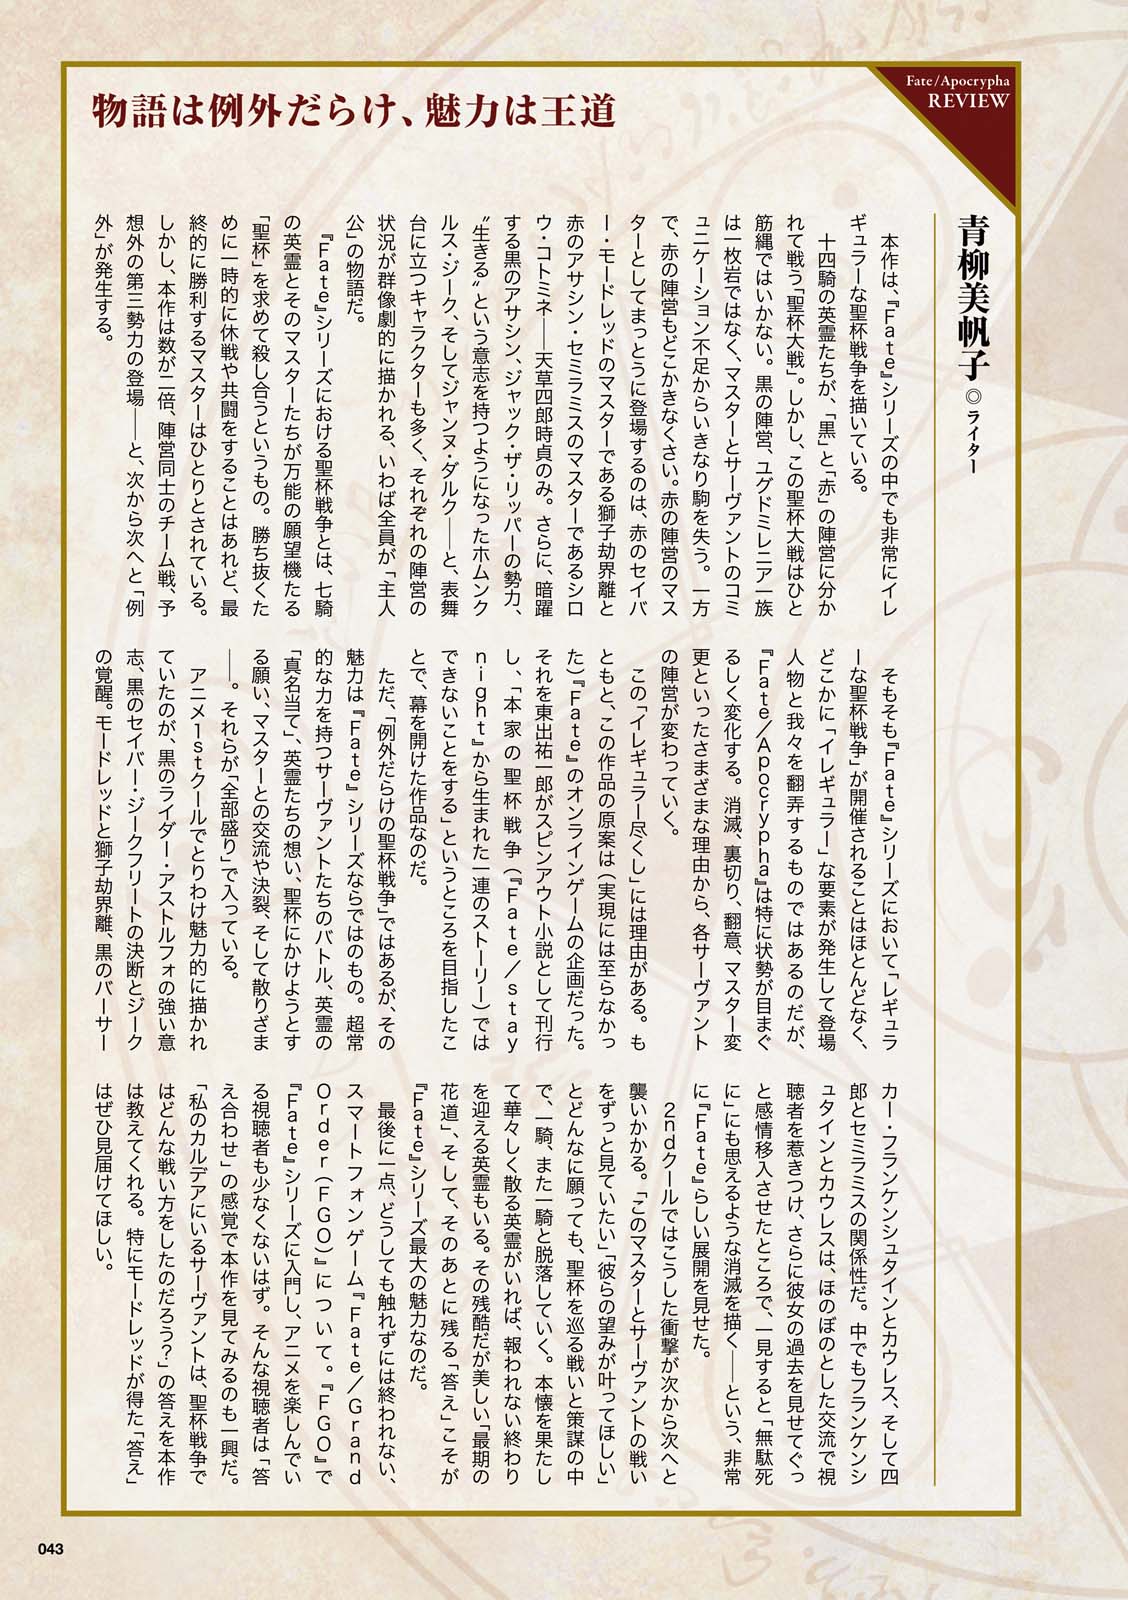 Fate/Apocrypha
REVIEW
物語は例外だらけ、魅力は王道
青柳美帆子◎ライター
　本作は、『Ｆａｔｅ』シリーズの中でも非常にイレ
ギュラーな聖杯戦争を描いている。
　十四騎の英霊たちが、「黒」と「赤」の陣営に分か
れて戦う「聖杯大戦」。しかし、この聖杯大戦はひと
筋縄ではいかない。黒の陣営、ユグドミレニア一族
は一枚岩ではなく、マスターとサーヴァントのコミ
ュニケーション不足からいきなり駒を失う。一方
で、赤の陣営もどこかきなくさい。赤の陣営のマス
ターとしてまっとうに登場するのは、赤のセイバ
ー・モードレッドのマスターである獅子劫界離と
赤のアサシン・セミラミスのマスターであるシロ
ウ・コトミネ――天草四郎時貞のみ。さらに、暗躍
する黒のアサシン、ジャック・ザ・リッパーの勢力、
〝生きる〟という意志を持つようになったホムンク
ルス・ジーク、そしてジャンヌ・ダルク――と、表舞
台に立つキャラクターも多く、それぞれの陣営の
状況が群像劇的に描かれる、いわば全員が「主人
公」の物語だ。
　『Ｆａｔｅ』シリーズにおける聖杯戦争とは、七騎
の英霊とそのマスターたちが万能の願望機たる
「聖杯」を求めて殺し合うというもの。勝ち抜くた
めに一時的に休戦や共闘をすることはあれど、最
終的に勝利するマスターはひとりとされている。
しかし、本作は数が二倍、陣営同士のチーム戦、予
想外の第三勢力の登場――と、次から次へと「例
外」が発生する。
　そもそも『Ｆａｔｅ』シリーズにおいて「レギュラ
ーな聖杯戦争」が開催されることはほとんどなく、
どこかに「イレギュラー」な要素が発生して登場
人物と我々を翻弄するものではあるのだが、
『Ｆａｔｅ／Ａｐｏｃｒｙｐｈａ』は特に状勢が目まぐ
るしく変化する。消滅、裏切り、翻意、マスター変
更といったさまざまな理由から、各サーヴァント
の陣営が変わっていく。
　この「イレギュラー尽くし」には理由がある。も
ともと、この作品の原案は（実現には至らなかっ
た）『Ｆａｔｅ』のオンラインゲームの企画だった。
それを東出祐一郎がスピンアウト小説として刊行
し、「本家の聖杯戦争（『Ｆａｔｅ／ｓｔａｙ
ｎｉｇｈｔ』から生まれた一連のストーリー）では
できないことをする」というところを目指したこ
とで、幕を開けた作品なのだ。
　ただ、「例外だらけの聖杯戦争」ではあるが、その
魅力は『Ｆａｔｅ』シリーズならではのもの。超常
的な力を持つサーヴァントたちのバトル、英霊の
「真名当て」、英霊たちの想い、聖杯にかけようとす
る願い、マスターとの交流や決裂、そして散りざま
――。それらが「全部盛り」で入っている。
　アニメ１ｓｔクールでとりわけ魅力的に描かれ
ていたのが、黒のライダー・アストルフォの強い意
志、黒のセイバー・ジークフリートの決断とジーク
の覚醒。モードレッドと獅子劫界離、黒のバーサー
カー・フランケンシュタインとカウレス、そして四
郎とセミラミスの関係性だ。中でもフランケンシ
ュタインとカウレスは、ほのぼのとした交流で視
聴者を惹きつけ、さらに彼女の過去を見せてぐっ
と感情移入させたところで、一見すると「無駄死
に」にも思えるような消滅を描く――という、非常
に『Ｆａｔｅ』らしい展開を見せた。
　２ｎｄクールではこうした衝撃が次から次へと
襲いかかる。「このマスターとサーヴァントの戦い
をずっと見ていたい」「彼らの望みが叶ってほしい」
とどんなに願っても、聖杯を巡る戦いと策謀の中
で、一騎、また一騎と脱落していく。本懐を果たし
て華々しく散る英霊がいれば、報われない終わり
を迎える英霊もいる。その残酷だが美しい「最期の
花道」、そして、そのあとに残る「答え」こそが
『Ｆａｔｅ』シリーズ最大の魅力なのだ。
　最後に一点、どうしても触れずには終われない、
スマートフォンゲーム『Ｆａｔｅ／Ｇｒａｎｄ
Ｏｒｄｅｒ（ＦＧＯ）』について。『ＦＧＯ』で
『Ｆａｔｅ』シリーズに入門し、アニメを楽しんでい
る視聴者も少なくないはず。そんな視聴者は「答
え合わせ」の感覚で本作を見てみるのも一興だ。
「私のカルデアにいるサーヴァントは、聖杯戦争で
はどんな戦い方をしたのだろう？」の答えを本作
は教えてくれる。特にモードレッドが得た「答え」
はぜひ見届けてほしい。
043